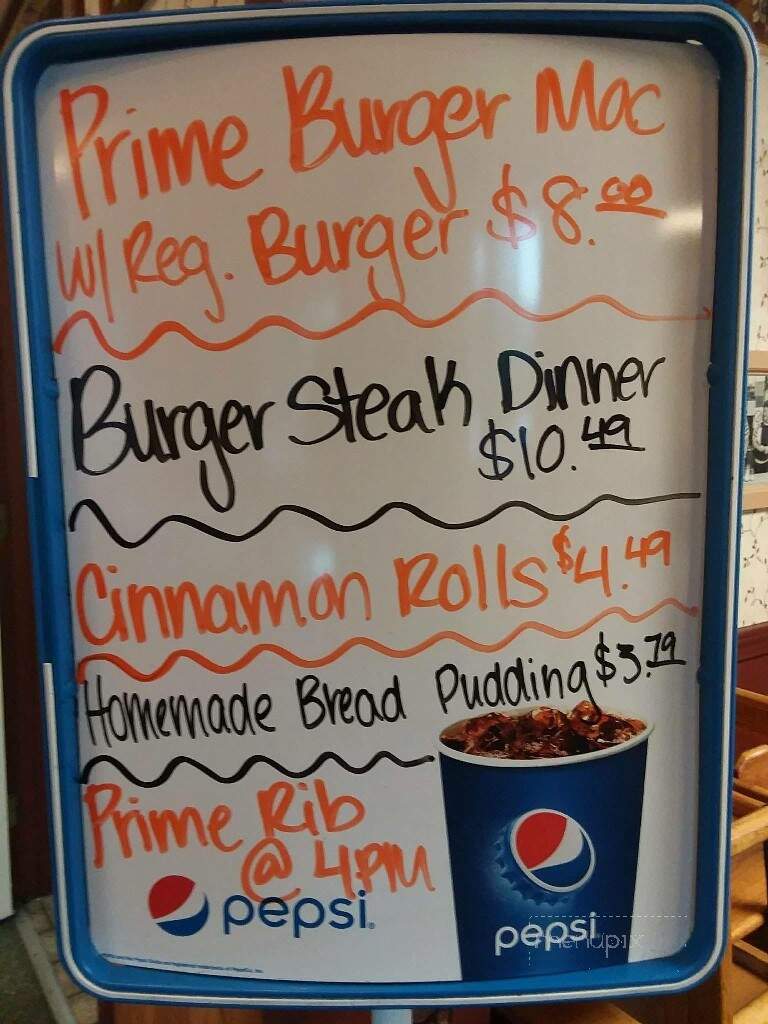 Prime Burger Mac
w/ Reg. Burger $8.00
Burger Steak Dinner
$10.49
Cinnamon Rolls $4.49
Homemade Bread Pudding $3.79
Prime Rib
@ 4PM
pepsi
pepsi
menupix